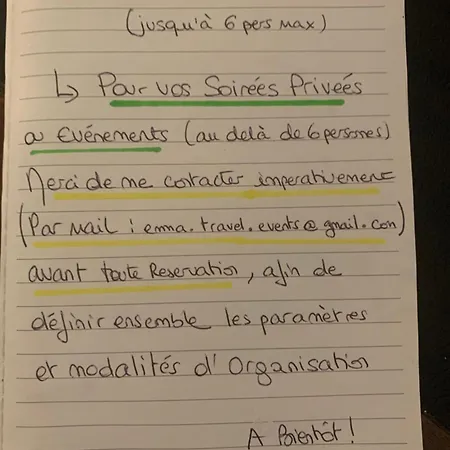 (jusqu'à 6 pers max)
↳ Pour vos Soirées Privées
ou Événements (au delà de 6 personnes)
Merci de me contacter imperativement
(Par Mail : emma.travel.events@gmail.com)
avant toute Reservation, afin de
définir ensemble les paramètres
et modalités d'Organisation
A Bientôt !